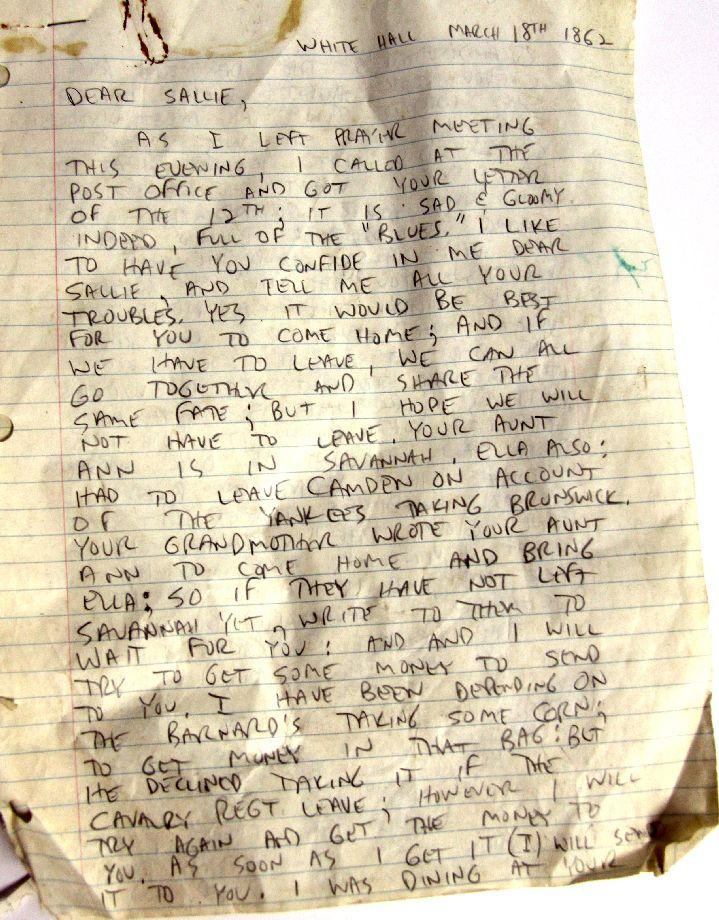 WHITE HALL MARCH 18TH 1862
DEAR SALLIE,
AS I LEFT PRAYER MEETING
THIS EVENING, I CALLED AT THE
POST OFFICE AND GOT YOUR LETTER
OF THE 12TH; IT IS SAD & GLOOMY
INDEED, FULL OF THE "BLUES." I LIKE
TO HAVE YOU CONFIDE IN ME DEAR
SALLIE, AND TELL ME ALL YOUR
TROUBLES. YES IT WOULD BE BEST
FOR YOU TO COME HOME; AND IF
WE HAVE TO LEAVE, WE CAN ALL
GO TOGETHER AND SHARE THE
SAME FATE; BUT I HOPE WE WILL
NOT HAVE TO LEAVE. YOUR AUNT
ANN IS IN SAVANNAH, ELLA ALSO;
HAD TO LEAVE CAMDEN ON ACCOUNT
OF THE YANKEES TAKING BRUNSWICK.
YOUR GRANDMOTHER WROTE YOUR AUNT
ANN TO COME HOME AND BRING
ELLA; SO IF THEY HAVE NOT LEFT
SAVANNAH YET, WRITE TO THEM TO
WAIT FOR YOU; AND AND I WILL
TRY TO GET SOME MONEY TO SEND
TO YOU. I HAVE BEEN DEPENDING ON
THE BARNARD'S TAKING SOME CORN;
TO GET MONEY IN THAT BAG; BUT
HE DECLINED TAKING IT IF THE
CAVALRY REGT LEAVE; HOWEVER I WILL
TRY AGAIN AND GET THE MONEY TO
YOU. AS SOON AS I GET IT (I) WILL SEND
IT TO YOU. I WAS DINING AT YOUR